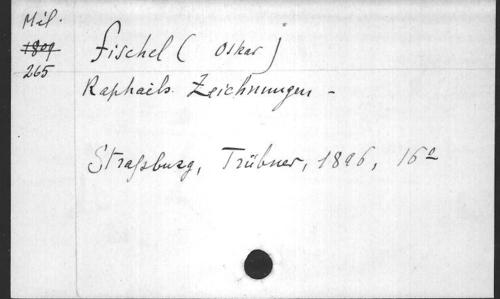 Mél.
1809
265
Fischel (Oskar)
Raphaels Zeichnungen -
Straßburg, Trübner, 1896, 16º